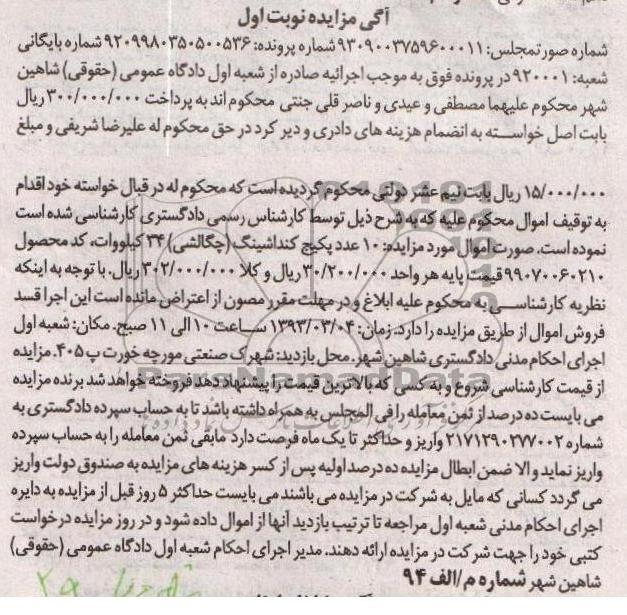 آگهی مزایده نوبت اول
شماره صورتمجلس: ۹۳۰۹۰۰۳۷۵۹۶۰۰۰۱۱ شماره پرونده: ۹۲۰۹۹۸۰۳۵۰۵۰۰۵۳۶ شماره بایگانی
شعبه: ۹۲۰۰۰۱ در پرونده فوق به موجب اجرائیه صادره از شعبه اول دادگاه عمومی (حقوقی) شاهین
شهر محکوم علیهما مصطفی و عیدی و ناصر قلی جنتی محکوم اند به پرداخت ۳۰۰/۰۰۰/۰۰۰ ریال
بابت اصل خواسته به انضمام هزینه های دادری و دیر کرد در حق محکوم له علیرضا شریفی و مبلغ
۱۵/۰۰۰/۰۰۰ ریال بابت نیم عشر دولتی محکوم گردیده است که محکوم له در قبال خواسته خود اقدام
به توقیف اموال محکوم علیه که به شرح ذیل توسط کارشناس رسمی دادگستری کارشناسی شده است
نموده است. صورت اموال مورد مزایده: ۱۰ عدد پکیج کنداشینگ (چگالشی) ۳۴ کیلووات، کد محصول
۹۹۰۷۰۰۶۰۲۱۰ قیمت پایه هر واحد ۳۰/۲۰۰/۰۰۰ ریال و کلا ۳۰۲/۰۰۰/۰۰۰ ریال. با توجه به اینکه
نظریه کارشناسی به محکوم علیه ابلاغ و در مهلت مقرر مصون از اعتراض مانده است این اجرا قسد
فروش اموال از طریق مزایده را دارد. زمان: ۱۳۹۳/۰۳/۰۴ ساعت ۱۰ الی ۱۱ صبح. مکان: شعبه اول
اجرای احکام مدنی دادگستری شاهین شهر. محل بازدید: شهرک صنعتی مورچه خورت پ ۴۰۵. مزایده
از قیمت کارشناسی شروع و به کسی که بالاترین قیمت را پیشنهاد دهد فروخته خواهد شد برنده مزایده
می بایست ده درصد از ثمن معامله را فی المجلس به همراه داشته باشد تا به حساب سپرده دادگستری به
شماره ۲۱۷۱۲۹۰۲۷۷۰۰۲ واریز و حداکثر تا یک ماه فرصت دارد مابقی ثمن معامله را به حساب سپرده
واریز نماید و الا ضمن ابطال مزایده ده درصد اولیه پس از کسر هزینه های مزایده به صندوق دولت واریز
می گردد کسانی که مایل به شرکت در مزایده می باشند می بایست حداکثر ۵ روز قبل از مزایده به دایره
اجرای احکام مدنی شعبه اول مراجعه تا ترتیب بازدید آنها از اموال داده شود و در روز مزایده درخواست
کتبی خود را جهت شرکت در مزایده ارائه دهند. مدیر اجرای احکام شعبه اول دادگاه عمومی (حقوقی)
شاهین شهر شماره م/الف ۹۴
ParsNamadData